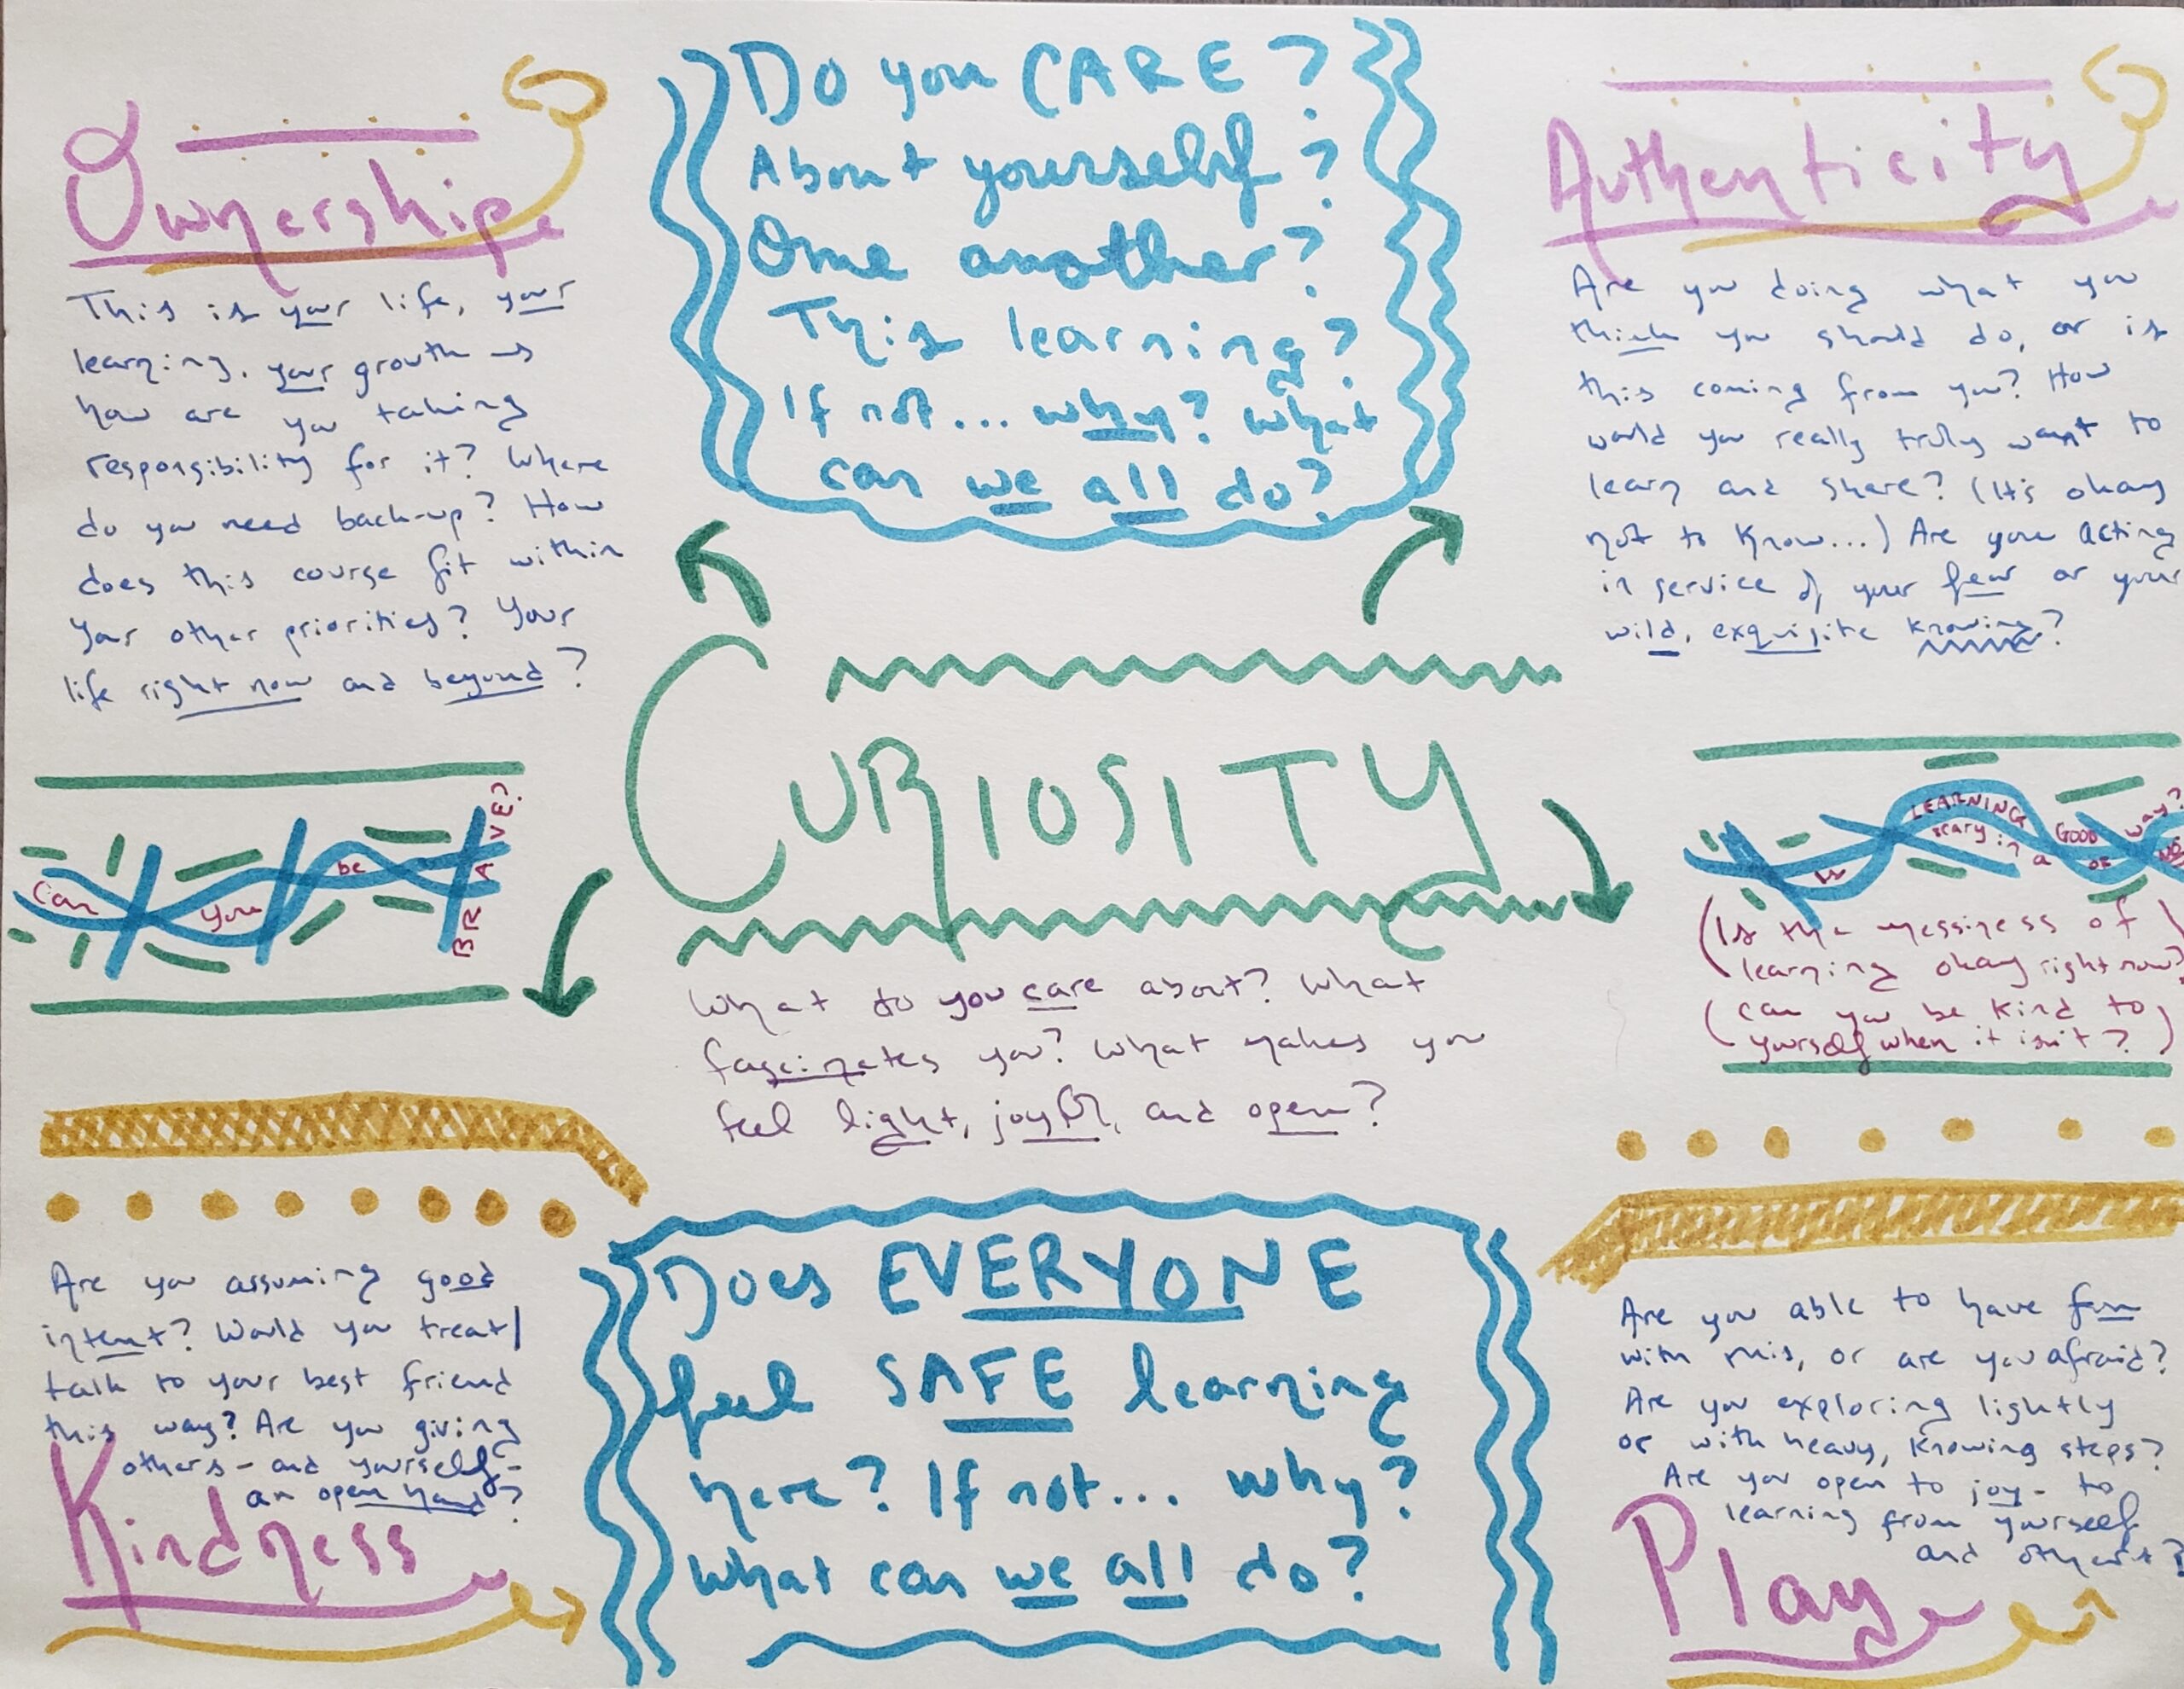 Ownership
This is your life, your
learning, your growth →
how are you taking
responsibility for it? Where
do you need back-up? How
does this course fit within
your other priorities? Your
life right now and beyond?
Do you CARE?
About yourself?
One another?
This learning?
If not... why? What
can we all do?
Authenticity
Are you doing what you
think you should do, or is
this coming from you? How
would you really truly want to
learn and share? (It's okay
not to know...) Are you acting
in service of your fear or your
wild, exquisite knowing?
CURIOSITY
What do you care about? What
fascinates you? What makes you
feel light, joyful, and open?
Can you be BRAVE?
Is LEARNING
scary in a GOOD way?
or NO
(Is the messiness of
learning okay right now?)
(can you be kind to
yourself when it isn't?)
Are you assuming good
intent? Would you treat/
talk to your best friend
this way? Are you giving
others - and yourself -
an open hand?
Kindness
Does EVERYONE
feel SAFE learning
here? If not... why?
What can we all do?
Are you able to have fun
with this, or are you afraid?
Are you exploring lightly
or with heavy, knowing steps?
Are you open to joy - to
learning from yourself
and others?
Play